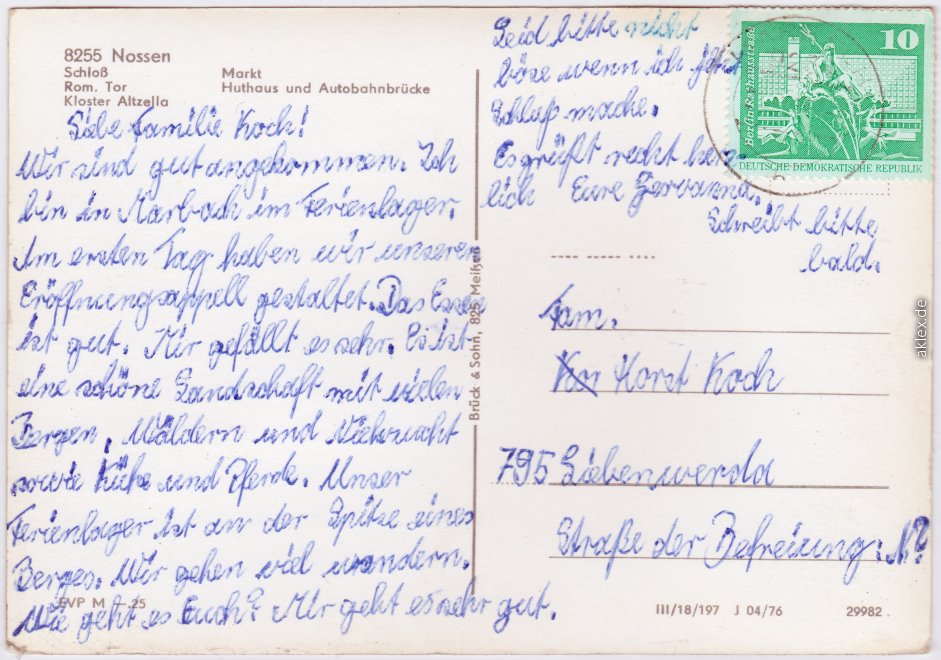 8255 Nossen
Schloß
Rom. Tor
Kloster Altzella
Markt
Huthaus und Autobahnbrücke
Liebe Familie Koch!
Wir sind gut angekommen. Ich
bin in Marbach im Ferienlager.
Am ersten Tag haben wir unseren
Eröffnungsappell gestaltet. Das Essen
ist gut. Mir gefällt es sehr. Es ist
eine schöne Landschaft mit vielen
Bergen, Wäldern und Viehzucht
sowie Kühe und Pferde. Unser
Ferienlager ist an der Spitze eines
Berges. Wir gehen viel wandern.
Wie geht es Euch? Mir geht es sehr gut.
EVP M –.25
Brück & Sohn, 825 Meißen
Seid bitte nicht
böse wenn ich jetzt
Schluß mache.
Es grüßt recht herz-
lich Eure
Schreibt bitte
bald.
10
Berlin-Rathausstraße
DEUTSCHE DEMOKRATISCHE REPUBLIK
Fam.
Horst Koch
795 Liebenwerda
Straße der Befreiung:
III/18/197 J 04/76 29982
aklex.de